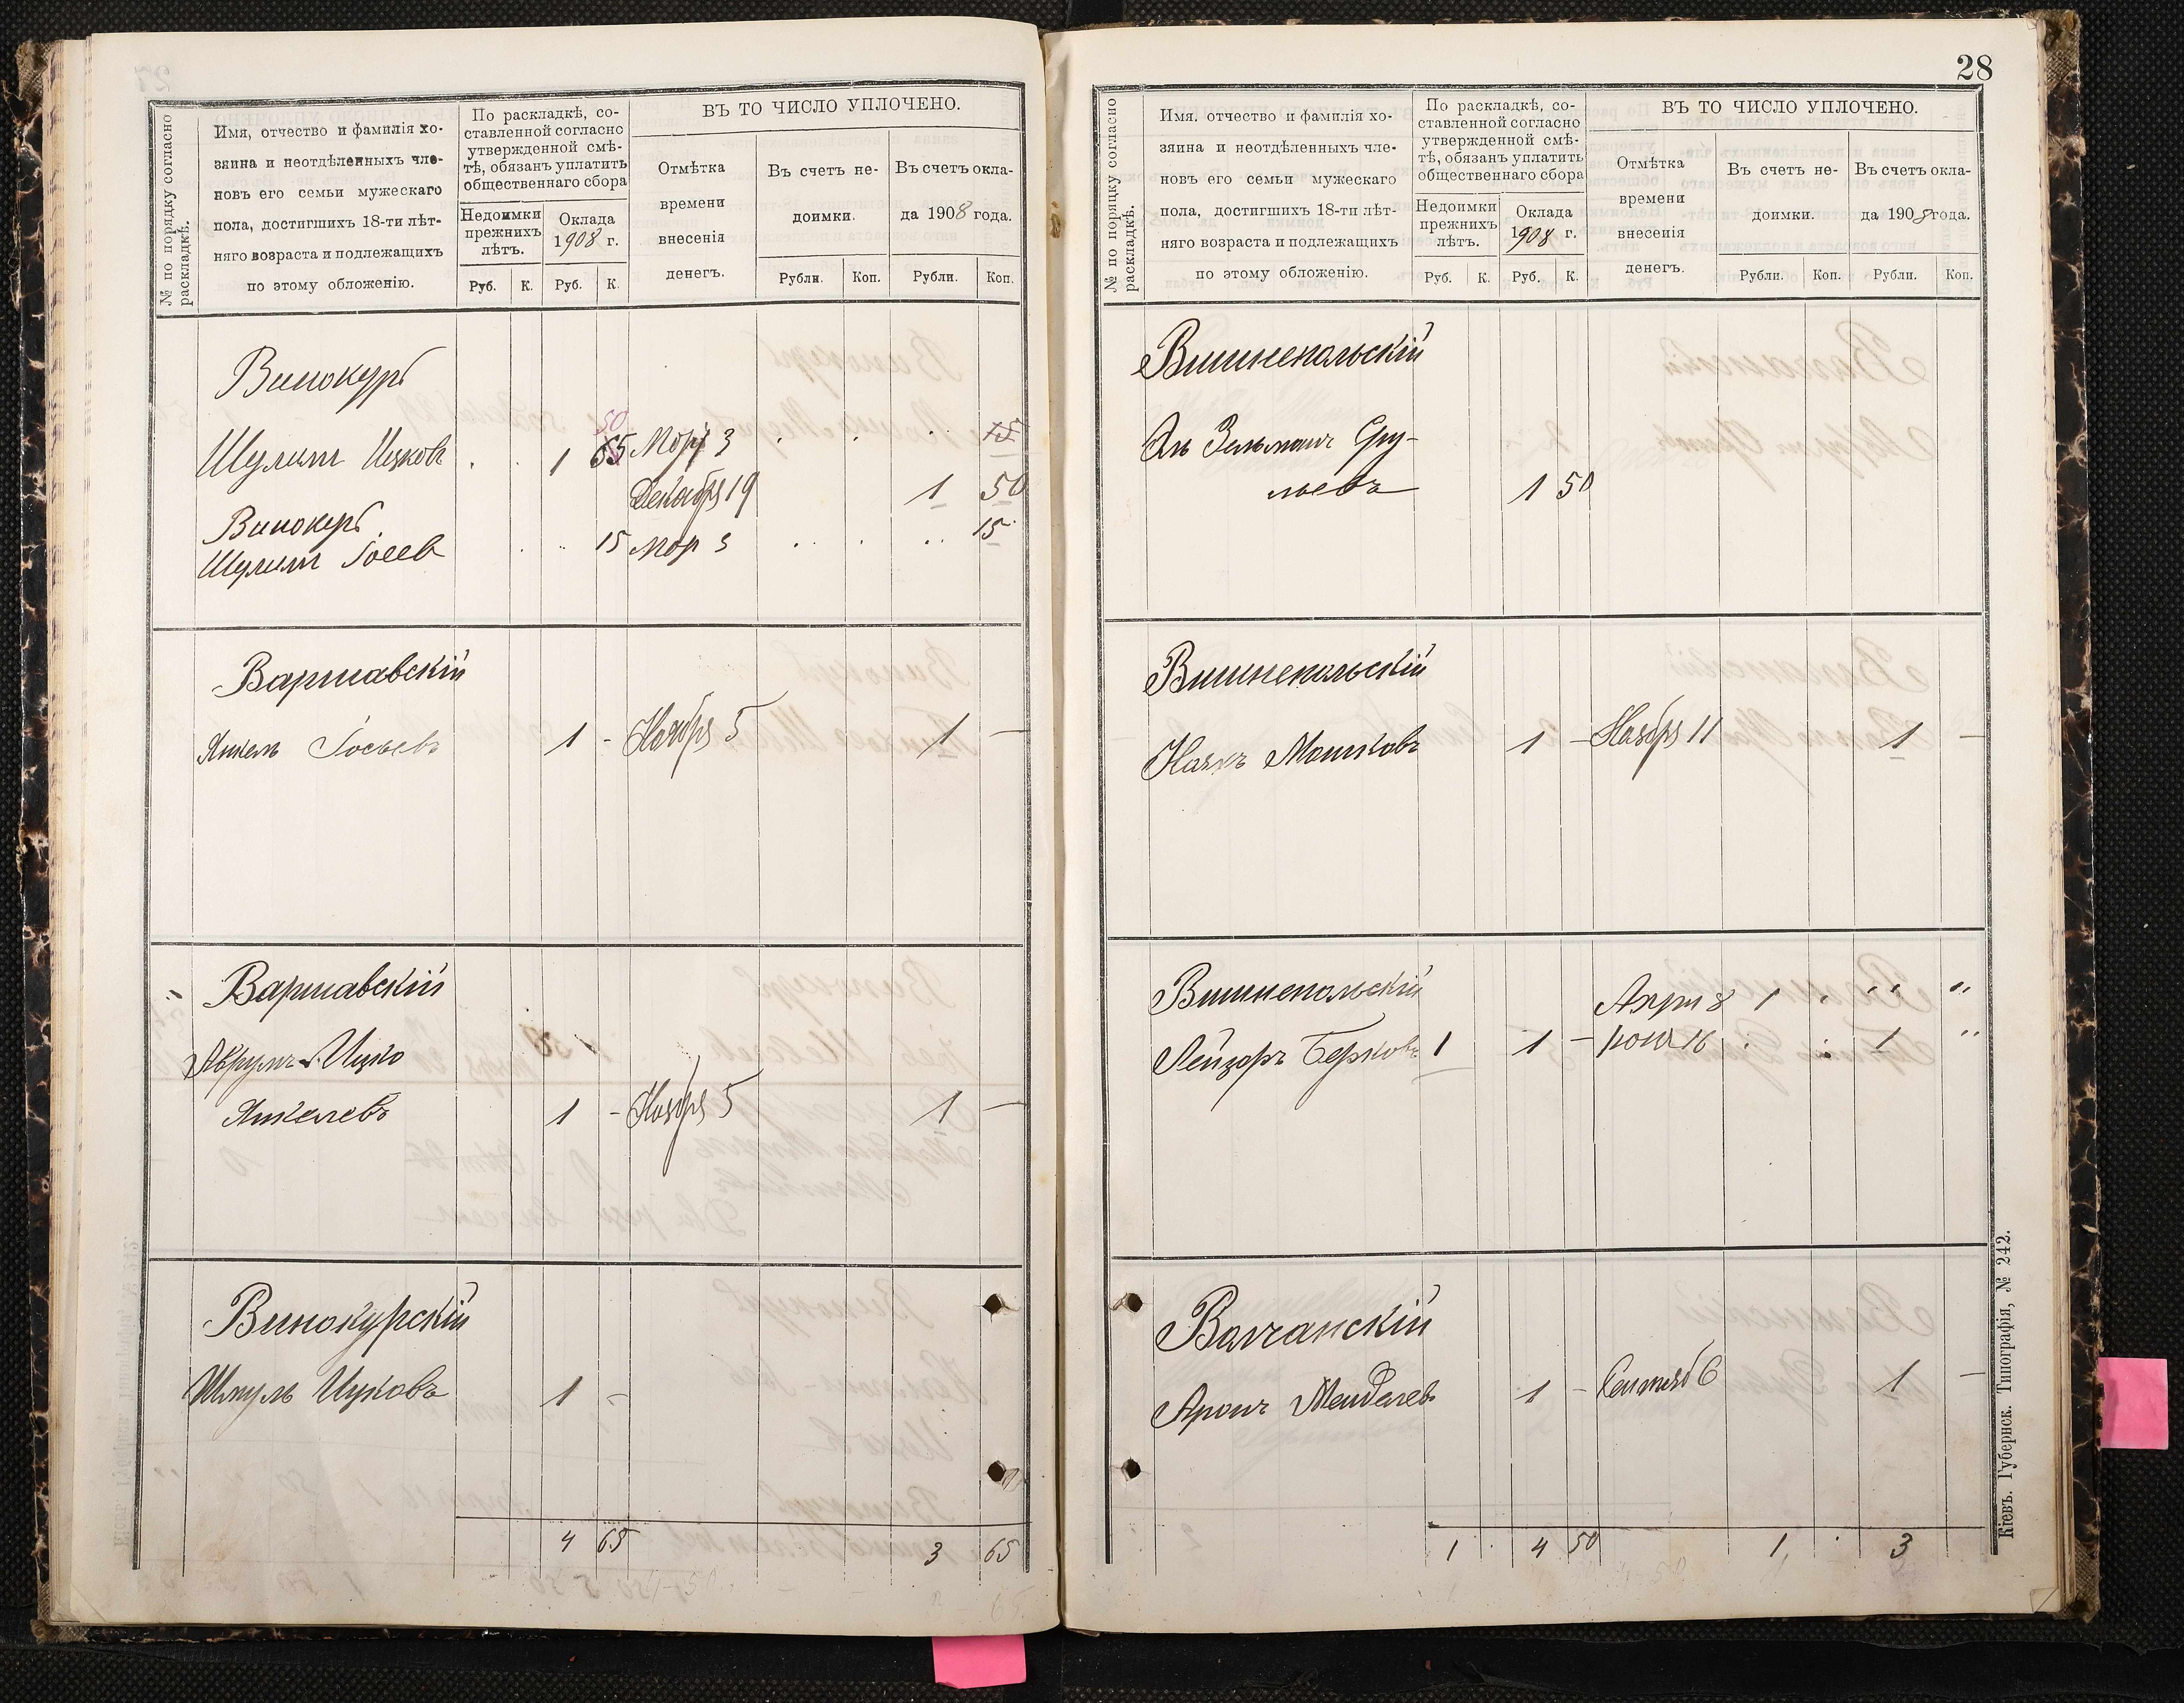 № по порядку согласно
раскладкѣ.
Имя, отчество и фамилія хо-
зяина и неотдѣленныхъ чле-
новъ его семьи мужескаго
пола, достигшихъ 18-ти лѣт-
няго возраста и подлежащихъ
по этому обложенію.
По раскладкѣ, со-
ставленной согласно
утвержденной смѣ-
тѣ, обязанъ уплатить
общественнаго сбора
Недоимки
прежнихъ
лѣтъ.
Оклада
1908 г.
Руб. К. Руб. К.
ВЪ ТО ЧИСЛО УПЛОЧЕНО.
Отмѣтка
времени
внесенія
денегъ.
Въ счетъ не-
доимки.
Въ счетъ окла-
да 1908 года.
Рубли. Коп. Рубли. Коп.
Винокуръ
50
Шулим Ицков 1 65 Мар 3 15
Декабря 19 1 50
Винокуръ
Шулим Іосев 15 мар 3 15
Варшавскій
Янкель Іосьевъ 1 - Ноября 5 1 —
Варшавскій
Аврумъ-Ицко
Янкелевъ 1 - Ноября 5 1 —
Винокурскій
Шмуль Ицковъ 1 -
4 65 3 65
28
№ по порядку согласно
раскладкѣ.
Имя. отчество и фамилія хо-
зяина и неотдѣленныхъ чле-
новъ его семьи мужескаго
пола, достигшихъ 18-ти лѣт-
няго возраста и подлежащихъ
по этому обложенію.
По раскладкѣ, со-
ставленной согласно
утвержденной смѣ-
тѣ, обязанъ уплатить
общественнаго сбора
Недоимки
прежнихъ
лѣтъ.
Оклада
1908 г.
Руб. К. Руб. К.
ВЪ ТО ЧИСЛО УПЛОЧЕНО.
Отмѣтка
времени
внесенія
денегъ.
Въ счетъ не-
доимки.
Въ счетъ окла-
да 1908 года.
Рубли. Коп. Рубли. Коп.
Вишнепольскій
Эль Зельманъ Сру-
льевъ 1 50
Вишнепольскій
Мошковъ 1 - Ноября 11 1 —
Вишнепольскій
Апрп 8 1 . " "
Лейзоръ Берковъ 1 1 - 16 1 "
Волчанскій
Аронъ Менделев 1 - Сентяб 6 1 —
1 4 50 1 3
Кіевъ. Губернск. Типографія, № 242.